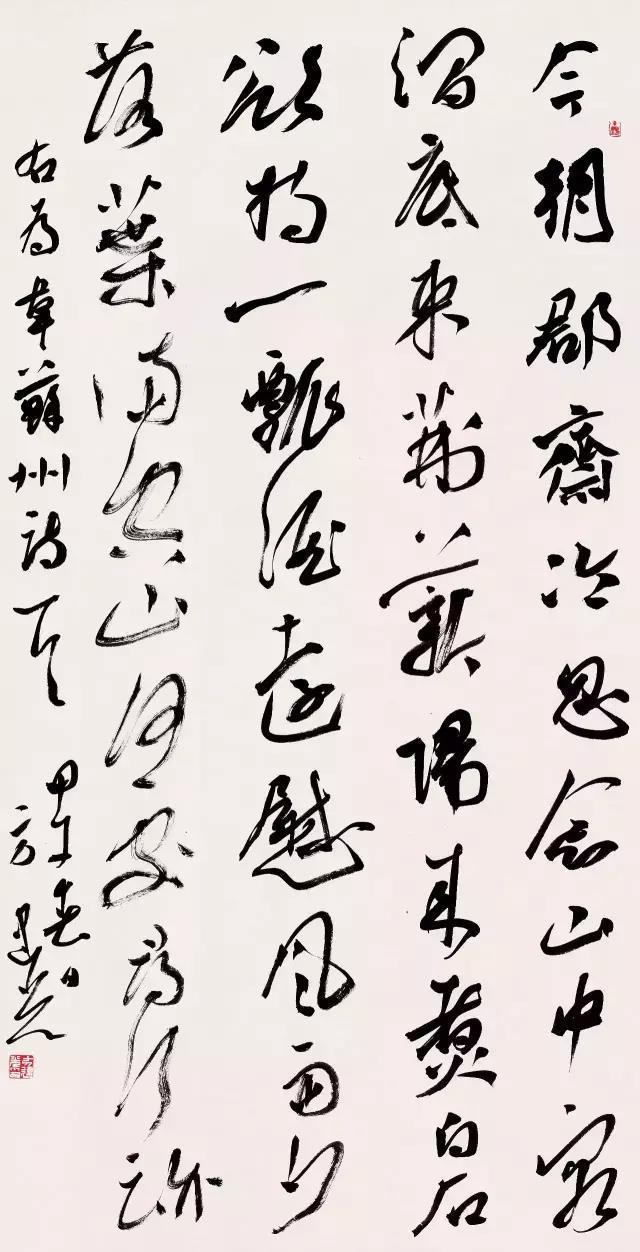 今朝郡齋冷忽念山中客
澗底束荆薪歸來煮白石
欲持一瓢酒遠慰風雨夕
落葉滿空山何處尋行跡
右為韋蘇州詩一首
甲午春日